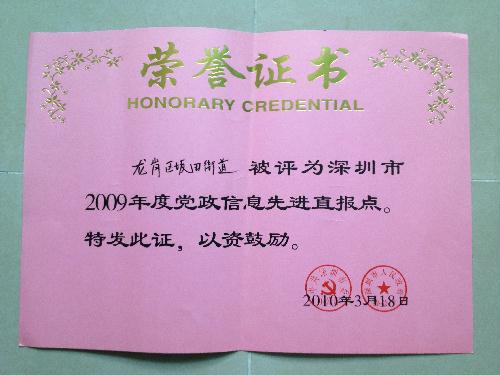 荣誉证书
HONORARY CREDENTIAL
龙岗区坂田街道 被评为深圳市
2009年度党政信息先进直报点。
特发此证，以资鼓励。
2010年3月18日